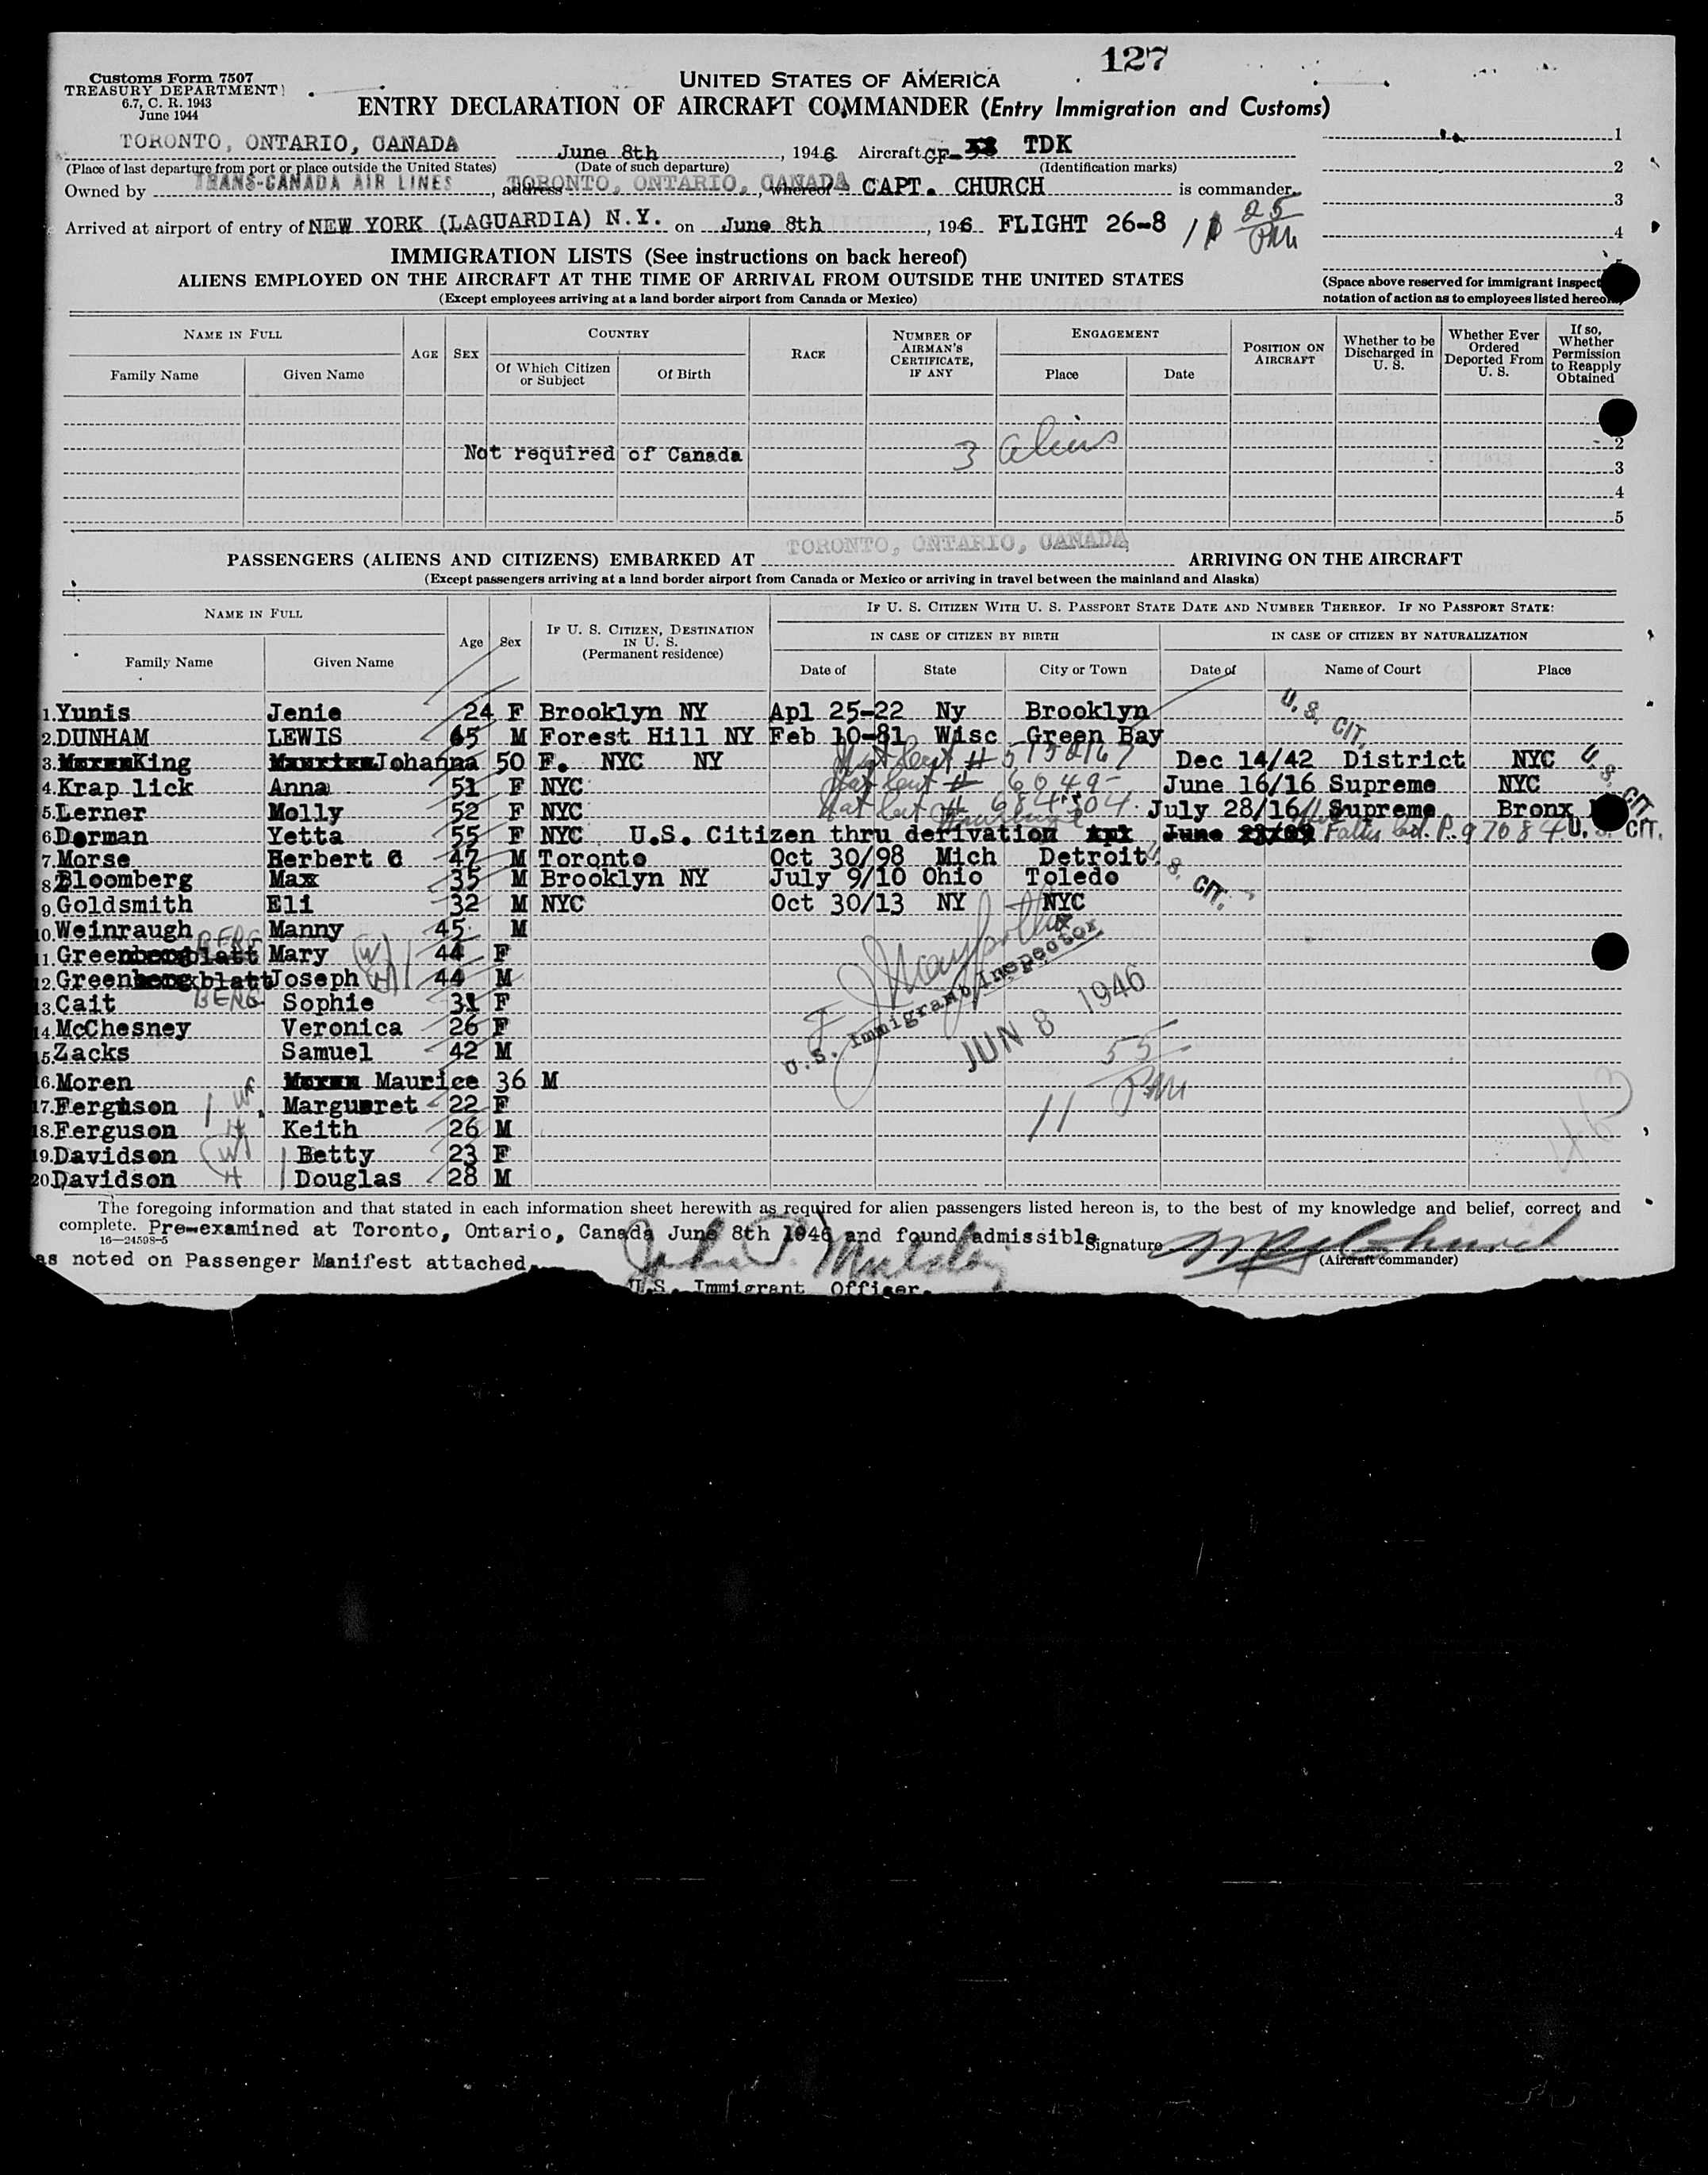 127
Customs Form 7507
TREASURY DEPARTMENT
6.7, C. R. 1943
June 1944
UNITED STATES OF AMERICA
ENTRY DECLARATION OF AIRCRAFT COMMANDER (Entry Immigration and Customs)
TORONTO, ONTARIO, CANADA June 8th, 1946 Aircraft CF- TDK
(Place of last departure from port or place outside the United States) (Date of such departure) (Identification marks)
Owned by TRANS-CANADA AIR LINES, address TORONTO, ONTARIO, CANADA, whereof CAPT. CHURCH is commander.
Arrived at airport of entry of NEW YORK (LAGUARDIA) N.Y. on June 8th, 1946 FLIGHT 26-8 25 PM
1
2
3
4
5
IMMIGRATION LISTS (See instructions on back hereof)
ALIENS EMPLOYED ON THE AIRCRAFT AT THE TIME OF ARRIVAL FROM OUTSIDE THE UNITED STATES
(Except employees arriving at a land border airport from Canada or Mexico)
(Space above reserved for immigrant inspect
notation of action as to employees listed hereon.)
NAME IN FULL
Family Name Given Name
AGE SEX
COUNTRY
Of Which Citizen or Subject Of Birth
RACE
NUMBER OF AIRMAN'S CERTIFICATE, IF ANY
ENGAGEMENT
Place Date
POSITION ON AIRCRAFT
Whether to be Discharged in U. S.
Whether Ever Ordered Deported From U. S.
If so, Whether Permission to Reapply Obtained
Not required of Canada 3 aliens
2
3
4
5
PASSENGERS (ALIENS AND CITIZENS) EMBARKED AT TORONTO, ONTARIO, CANADA ARRIVING ON THE AIRCRAFT
(Except passengers arriving at a land border airport from Canada or Mexico or arriving in travel between the mainland and Alaska)
NAME IN FULL
Family Name Given Name
Age Sex
IF U. S. CITIZEN, DESTINATION IN U. S. (Permanent residence)
IF U. S. CITIZEN WITH U. S. PASSPORT STATE DATE AND NUMBER THEREOF. IF NO PASSPORT STATE:
IN CASE OF CITIZEN BY BIRTH IN CASE OF CITIZEN BY NATURALIZATION
Date of State City or Town Date of Name of Court Place
1. Yunis Jenie 24 F Brooklyn NY Apl 25-22 Ny Brooklyn U. S. CIT.
2. DUNHAM LEWIS 65 M Forest Hill NY Feb 10-81 Wisc Green Bay
3. King Johanna 50 F. NYC NY # 5152167 Dec 14/42 District NYC U. S. CIT.
4. Krap lick Anna 51 F NYC # 6049 June 16/16 Supreme NYC
5. Lerner Molly 52 F NYC # 684504 July 28/16 Supreme Bronx
6. Derman Yetta 55 F NYC U.S. Citizen thru derivation June P.97084 U. S. CIT.
7. Morse Herbert C 47 M Toronto Oct 30/98 Mich Detroit
8. Bloomberg Max 35 M Brooklyn NY July 9/10 Ohio Toledo U. S. CIT.
9. Goldsmith Eli 32 M NYC Oct 30/13 NY NYC
10. Weinraugh Manny 45 M
11. Green BERG Mary (W) 44 F
12. Green Joseph H 44 M
BERG
13. Cait Sophie 31 F
14. McChesney Veronica 26 F
15. Zacks Samuel 42 M
16. Moren Maurice 36 M
17. Ferguson W Marguaret 22 F
18. Ferguson H Keith 26 M
19. Davidson (W) Betty 23 F
20. Davidson H Douglas 28 M
U. S. Immigrant Inspector
JUN 8 1946
11 55 PM
The foregoing information and that stated in each information sheet herewith as required for alien passengers listed hereon is, to the best of my knowledge and belief, correct and
complete. Pre-examined at Toronto, Ontario, Canada June 8th 1946 and found admissible
16—24598-5
Signature
(Aircraft commander)
as noted on Passenger Manifest attached.
U.S. Immigrant Officer.